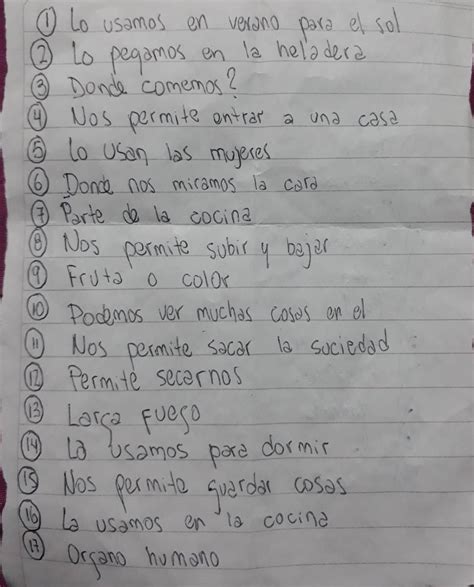 ① Lo usamos en verano para el sol
② Lo pegamos en la heladera
③ Donde comemos?
④ Nos permite entrar a una casa
⑤ Lo usan las mujeres
⑥ Donde nos miramos la cara
⑦ Parte de la cocina
⑧ Nos permite subir y bajar
⑨ Fruta o color
⑩ Podemos ver muchas cosas en el
⑪ Nos permite sacar la suciedad
⑫ Permite secarnos
⑬ Larga fuego
⑭ La usamos para dormir
⑮ Nos permite guardar cosas
⑯ La usamos en la cocina
⑰ Organo humano